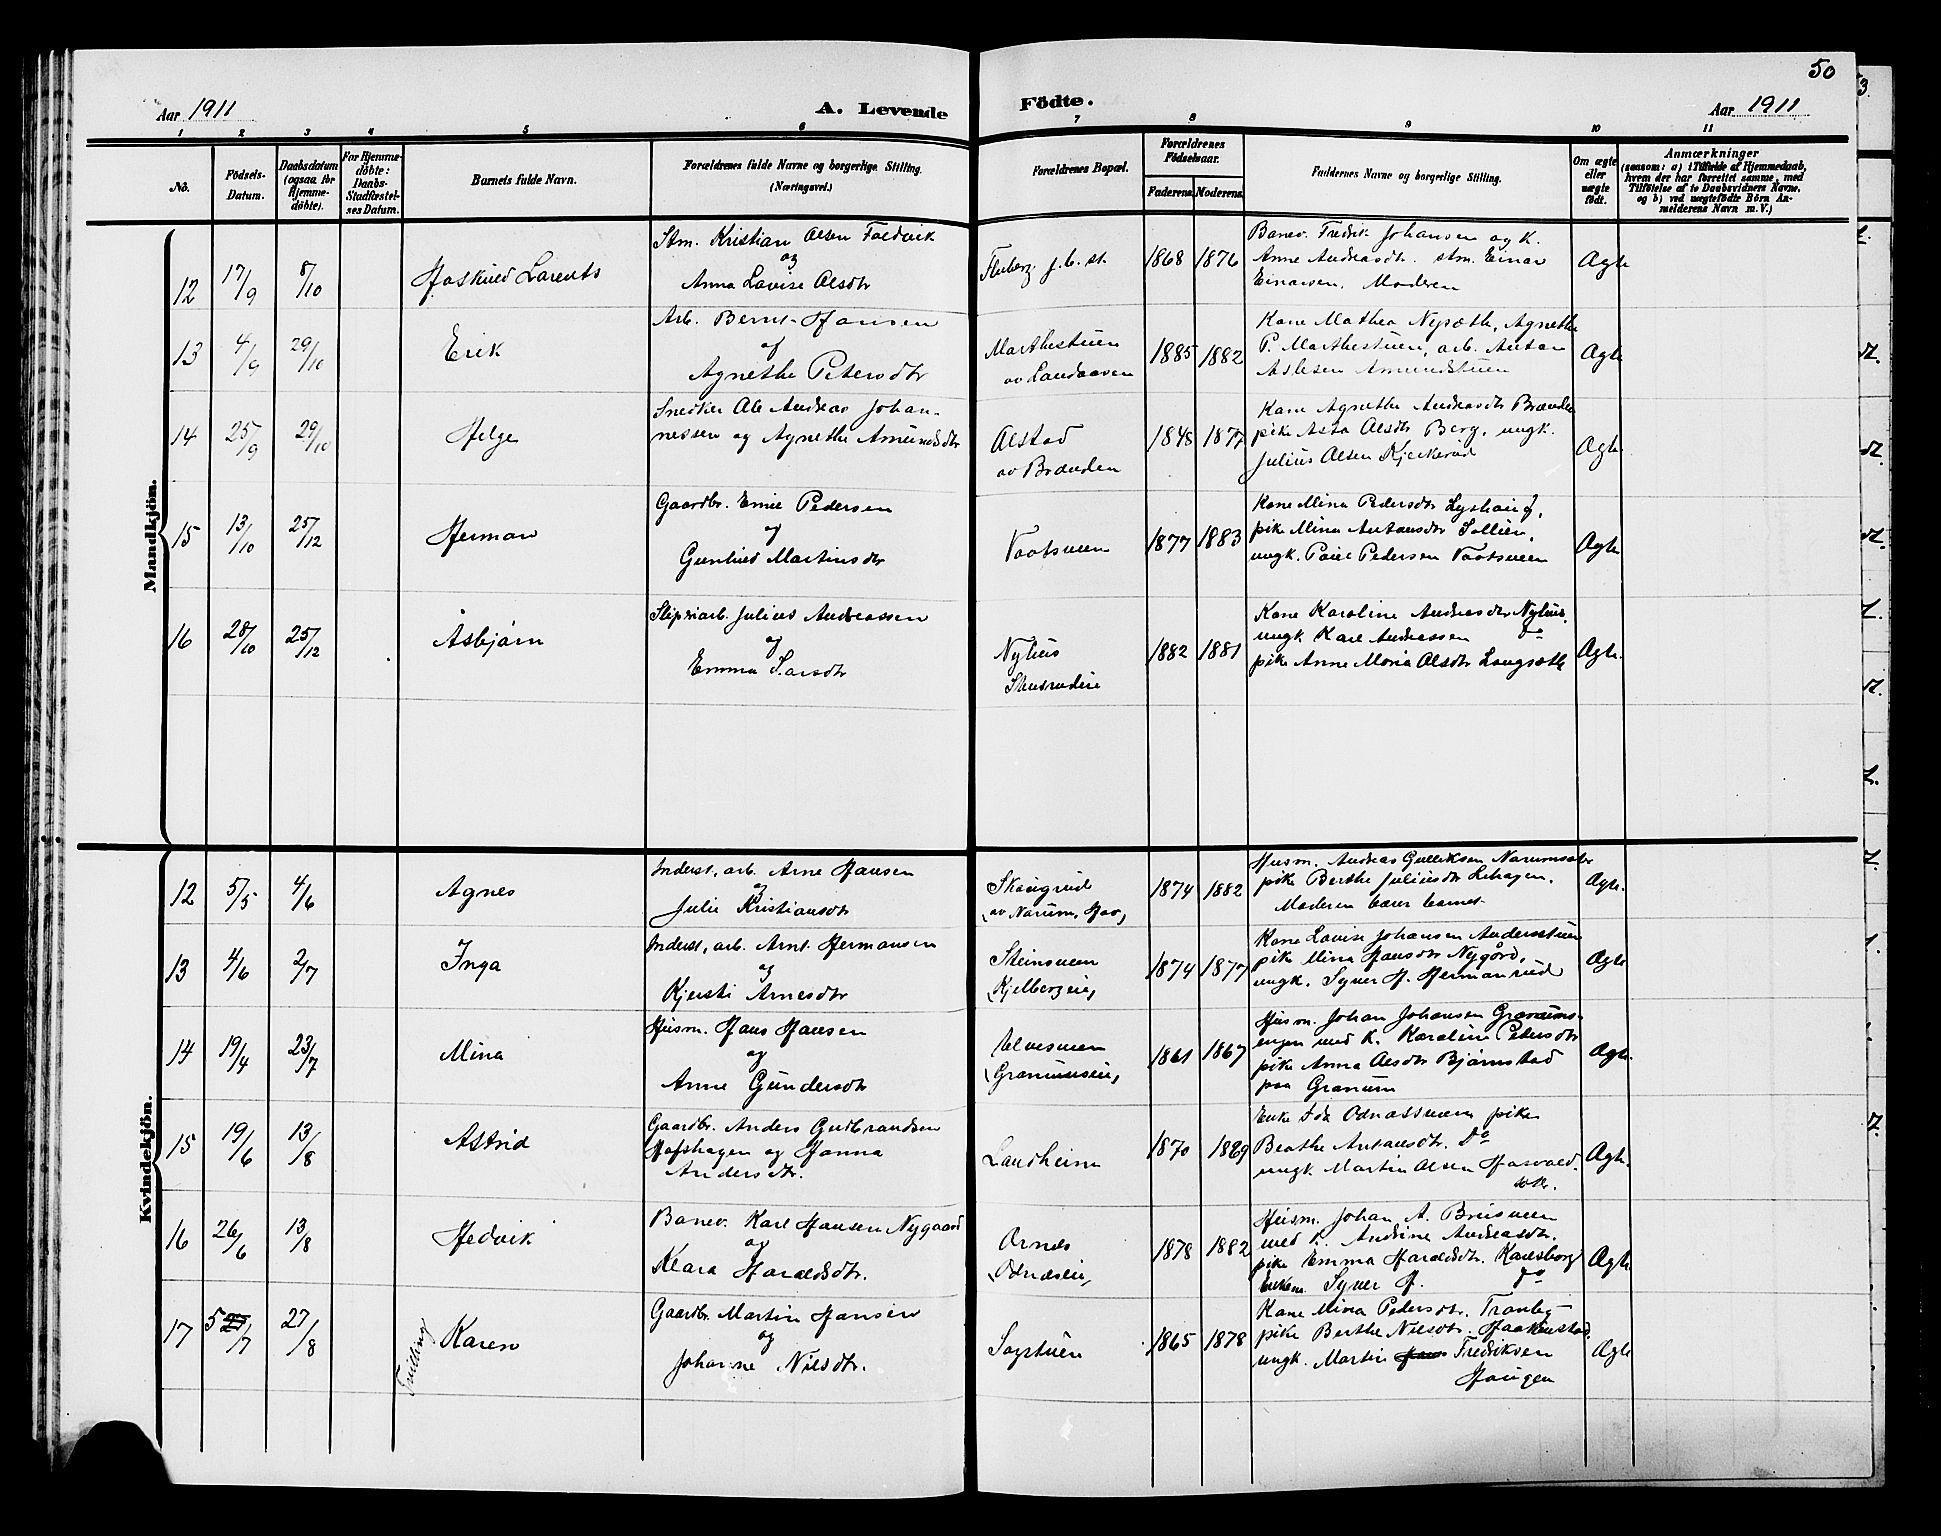 50
Aar 1911
A. Levende Födte.
Aar 1911
1 2 3 4 5 6 7 8 9 10 11
No.
Födsels-Datum.
Daabsdatum (ogsaa for Hjemmedöbte).
For Hjemmedöbte: Daabs-Stadfæstelses Datum.
Barnets fulde Navn.
Forældrenes fulde Navne og borgerlige Stilling.
(Næringsvei.)
Forældrenes Bopæl.
Forældrenes Födselsaar.
Faderens. Moderens.
Faddernes Navne og borgerlige Stilling.
Om ægte eller uægte født.
Anmærkninger
(saasom: a) i Tilfælde af Hjemmedaab,
hvem der har forrettet samme, med
Tilföielse af to Daabsvidners Navne,
og b) ved uægtefödte Börn Anmelderens Navn m. V.)
Mandkjön.
12 17/9 8/10
Haskild Larents
Stm. Kristian Olsen Foldvik
og
Anna Lovise Olsdtr
Fluberg j.b. st.
1868 1876
Banev. Fredrik Johansen og K.
Anne Andreasdtr. stm. Einar
Einarsen. Moderen
Ægte
13 4/9 29/10
Erik
Arb. Bernt Hansen
og
Agnethe Petersdtr
Marthestuen
av Landaasen
1885 1882
Kone Mathea Nysæth, Agnethe
P. Marthestuen, arb. Anton
Aslesen Amundstuen
Ægte
14 25/9 29/10
Helge
Snedker Ole Andreas Johan-
nessen og Agnethe Amundsdtr
Alstad
av Brænden
1848 1877
Kone Agnethe Andreasdtr Brænden
pike Asta Olsdtr Berg, ungk.
Julius Olsen Kjekerud
Ægte
15 13/10 25/12
Herman
Gaardbr. Emil Pedersen
og
Gunhild Martinsdtr
Vaatsveen
1877 1883
Kone Mina Pedersdtr Lyshaug,
pike Mina Antonsdtr Sollien,
ungk. Paul Pedersen Vaatsveen
Ægte
16 28/10 25/12
Asbjørn
Sliperiarb. Julius Andreassen
og
Emma Larsdtr
Nyhus
1882 1881
Kone Karoline Andreasdtr Nyhus,
ungk Karl Andreassen do
pike Anne Maria Olsdtr Langsæth
Ægte.
Kvindekjön.
12 5/5 4/6
Agnes
Inderst, arb. Arne Hansen
og
Julie Kristiansdtr
Skaugrud
(av Narum, Hov)
1874 1882
Husm. Andreas Gulliksen
pike Berthe Juliusdtr Lehagen.
Moderen bærer barnet
Ægte.
13 4/6 2/7
Inga
Inderst, arb. Arnt Hermansen
og
Kjersti Arnesdtr
Steinsveen
(Kjelbergeie)
1874 1877
Kone Lovise Johansen Anderstuen
pike Mina Hansdtr Nygård,
ungk. Syver H. Hermanrud
Ægte
14 19/4 23/7
Mina
Husm. Hans Hansen
og
Anne Gundersdtr
Elvesveen
(Granumseie)
1861 1867
Husm. Johan Johansen Granums-
engen med K. Karoline Pedersdtr
pike Anna Olsdtr Bjørnstad
paa Granum
Ægte.
15 19/6 13/8
Astrid
Gaardbr. Anders Gudbrandsen
Hofshagen og Hanna
Andersdtr.
Landheim
1870 1869
Enke Ida Odnassveen pike
Berthe Antonsdtr. Do
ungk. Martin Olsen Hasvold.
Ægte.
16 26/6 13/8
Hedvik
Banev. Karl Hansen Nygaard
og
Klara Haraldsdtr.
Ornes
(Odnæseie)
1878 1882
Husm. Johan A. Bruisveen
med K. Andrine Andreasdtr.
pike Emma Haraldsdtr. Karlsborg
Enkem Syver H. do
Ægte
17 5/7 27/8
Trilling
Karen
Gaardbr. Martin Hansen
og
Johanne Nilsdtr.
Sagstuen
1865 1878
Kone Mina Pedersdtr. Tranby
pike Berthe Nilsdtr. Haakenstad.
ungk. Martin Fredriksen
Haugen
Ægte